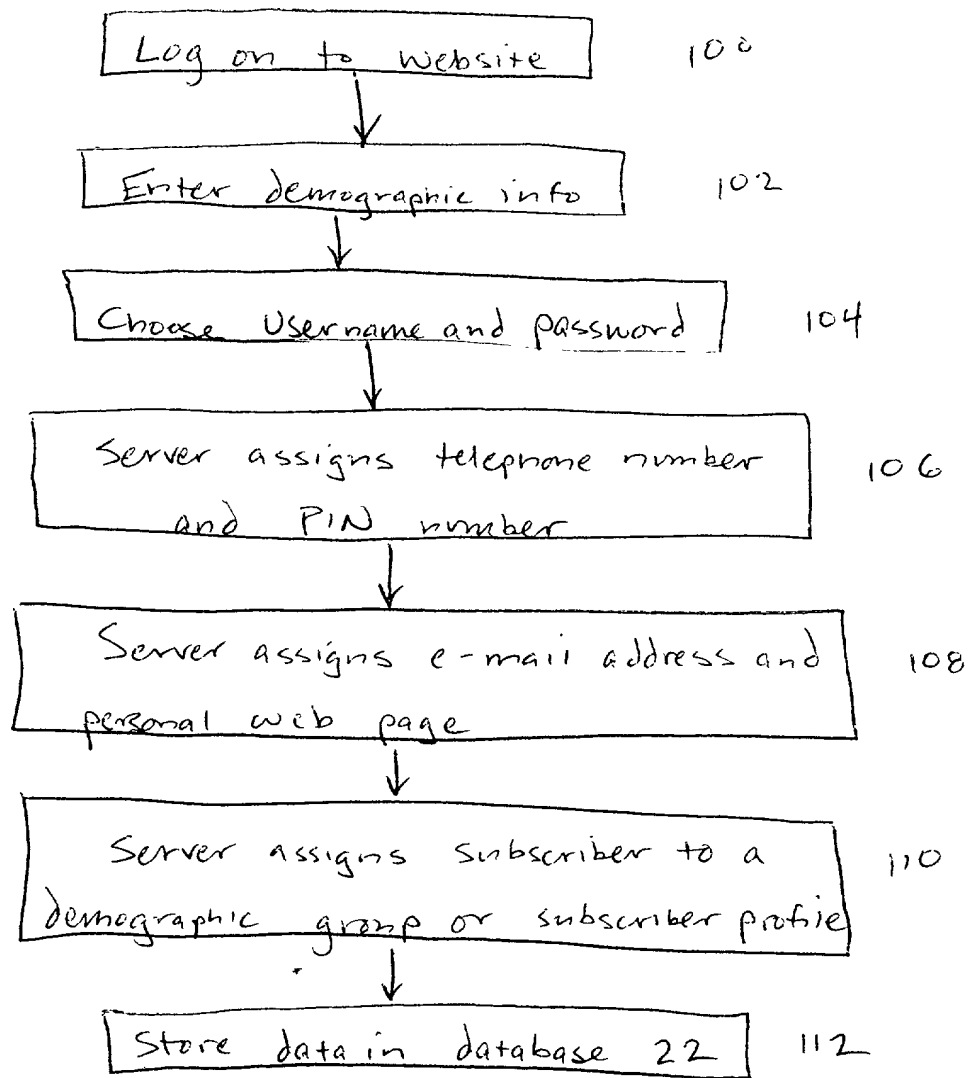 Log on to website 100
Enter demographic info 102
Choose Username and password 104
Server assigns telephone number
and PIN number
106
Server assigns e-mail address and
personal web page
108
Server assigns subscriber to a
demographic group or subscriber profile
110
Store data in database 22 112